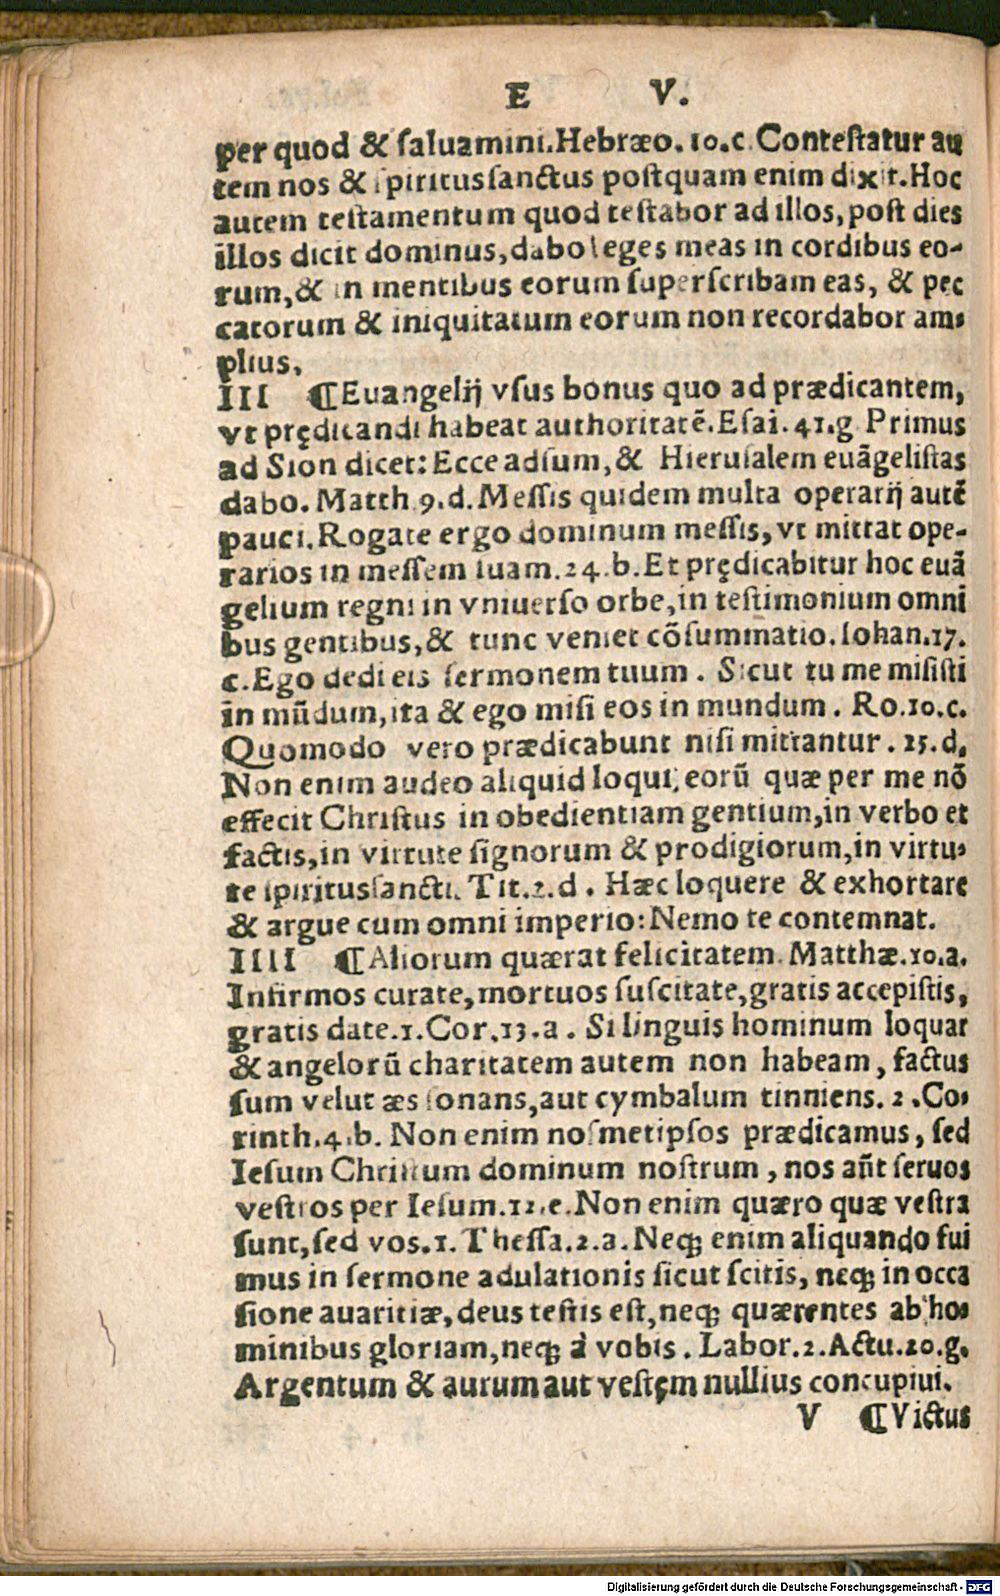 E V.
per quod & ſaluamini. Hebræo. 10. c. Conteſtatur au
tem nos & ſpiritusſanctus poſtquam enim dixit. Hoc
autem teſtamentum quod teſtabor ad illos, poſt dies
illos dicit dominus, dabo leges meas in cordibus eo-
rum, & in mentibus eorum ſuperſcribam eas, & pec
catorum & iniquitatum eorum non recordabor am-
plius.
III ¶ Euangelij vſus bonus quo ad prædicantem,
vt prędicandi habeat authoritatē. Eſai. 41. g Primus
ad Sion dicet: Ecce adſum, & Hieruſalem euāgeliſtas
dabo. Matth. 9. d. Meſſis quidem multa operarij autē
pauci. Rogate ergo dominum meſſis, vt mittat ope-
rarios in meſſem ſuam. 24. b. Et prędicabitur hoc euā
gelium regni in vniuerſo orbe, in teſtimonium omni
bus gentibus, & tunc veniet cōſummatio. Iohan. 17.
c. Ego dedi eis ſermonem tuum. Sicut tu me miſiſti
in mūdum, ita & ego miſi eos in mundum. Ro. 10. c.
Quomodo vero prædicabunt niſi mittantur. 15. d.
Non enim audeo aliquid loqui, eorū quæ per me nō
effecit Chriſtus in obedientiam gentium, in verbo et
factis, in virtute ſignorum & prodigiorum, in virtu-
te ſpiritusſancti. Tit. 2. d. Hæc loquere & exhortare
& argue cum omni imperio: Nemo te contemnat.
IIII ¶ Aliorum quærat felicitatem. Matthæ. 10. a.
Infirmos curate, mortuos ſuſcitate, gratis accepiſtis,
gratis date. 1. Cor. 13. a. Si linguis hominum loquar
& angelorū charitatem autem non habeam, factus
ſum velut æs ſonans, aut cymbalum tinniens. 2. Co-
rinth. 4. b. Non enim noſmetipſos prædicamus, ſed
Ieſum Chriſtum dominum noſtrum, nos añt ſeruos
veſtros per Ieſum. 12. e. Non enim quæro quæ veſtra
ſunt, ſed vos. 1. Theſſa. 2. a. Neq; enim aliquando fui
mus in ſermone adulationis ſicut ſcitis, neq; in occa
ſione auaritiæ, deus teſtis eſt, neq; quærentes ab ho-
minibus gloriam, neq; à vobis. Labor. 2. Actu. 20. g.
Argentum & aurum aut veſtęm nullius concupiui.
V ¶ Victus
Digitalisierung gefördert durch die Deutsche Forschungsgemeinschaft - DFG